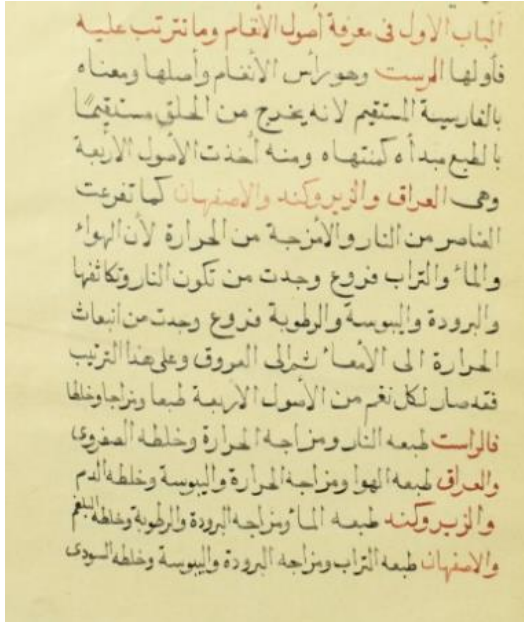 الباب الاول فى معرفة أصول الأنغام وما تترتب عليه
فأولها الرست وهو رأس الأنغام وأصلها ومعناه
بالفارسية المستقيم لانه يخرج من الحلق مستقيمًا
بالطبع مبدأه كمنتهاه ومنه أخذت الأصول الأربعة
وهى العراق والزيروكند والاصفهان كما تفرعت
العناصر من النار والأمزجة من الحرارة لأن الهواء
والماء والتراب فروع وجدت من تكون النار وتكاثفها
والبرودة واليبوسة والرطوبة فروع وجدت من انبعاث
الحرارة الى الأمعاء ثم إلى العروق وعلى هذا الترتيب
فقد صار لكل نغم من الأصول الاربعة طبعا ومزاجا وخلطا
فالراست طبعه النار ومزاجه الحرارة وخلطه الصفروى
والعراق طبعه الهوا ومزاجه الحرارة واليبوسة وخلطه الدم
والزيروكند طبعه الماء ومزاجه البرودة والرطوبة وخلطه البلغم
والاصفهان طبعه التراب ومزاجه البرودة واليبوسة وخلطه السودى